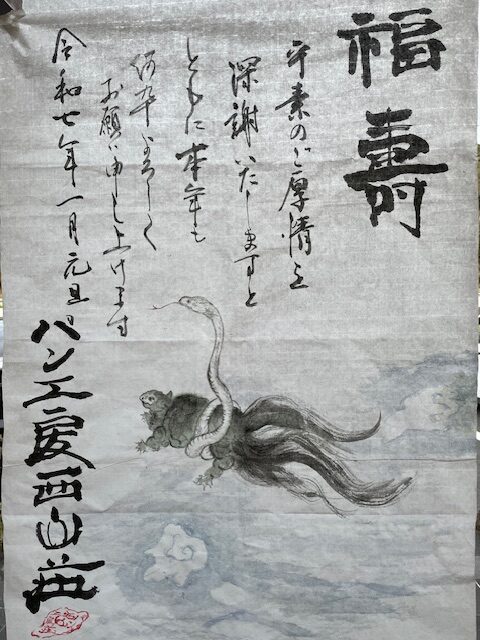 福壽
平素のご厚情を
深謝いたしますと
ともに本年も
何卒よろしく
お願い申し上げます
令和七年一月元旦
パン工房西山荘